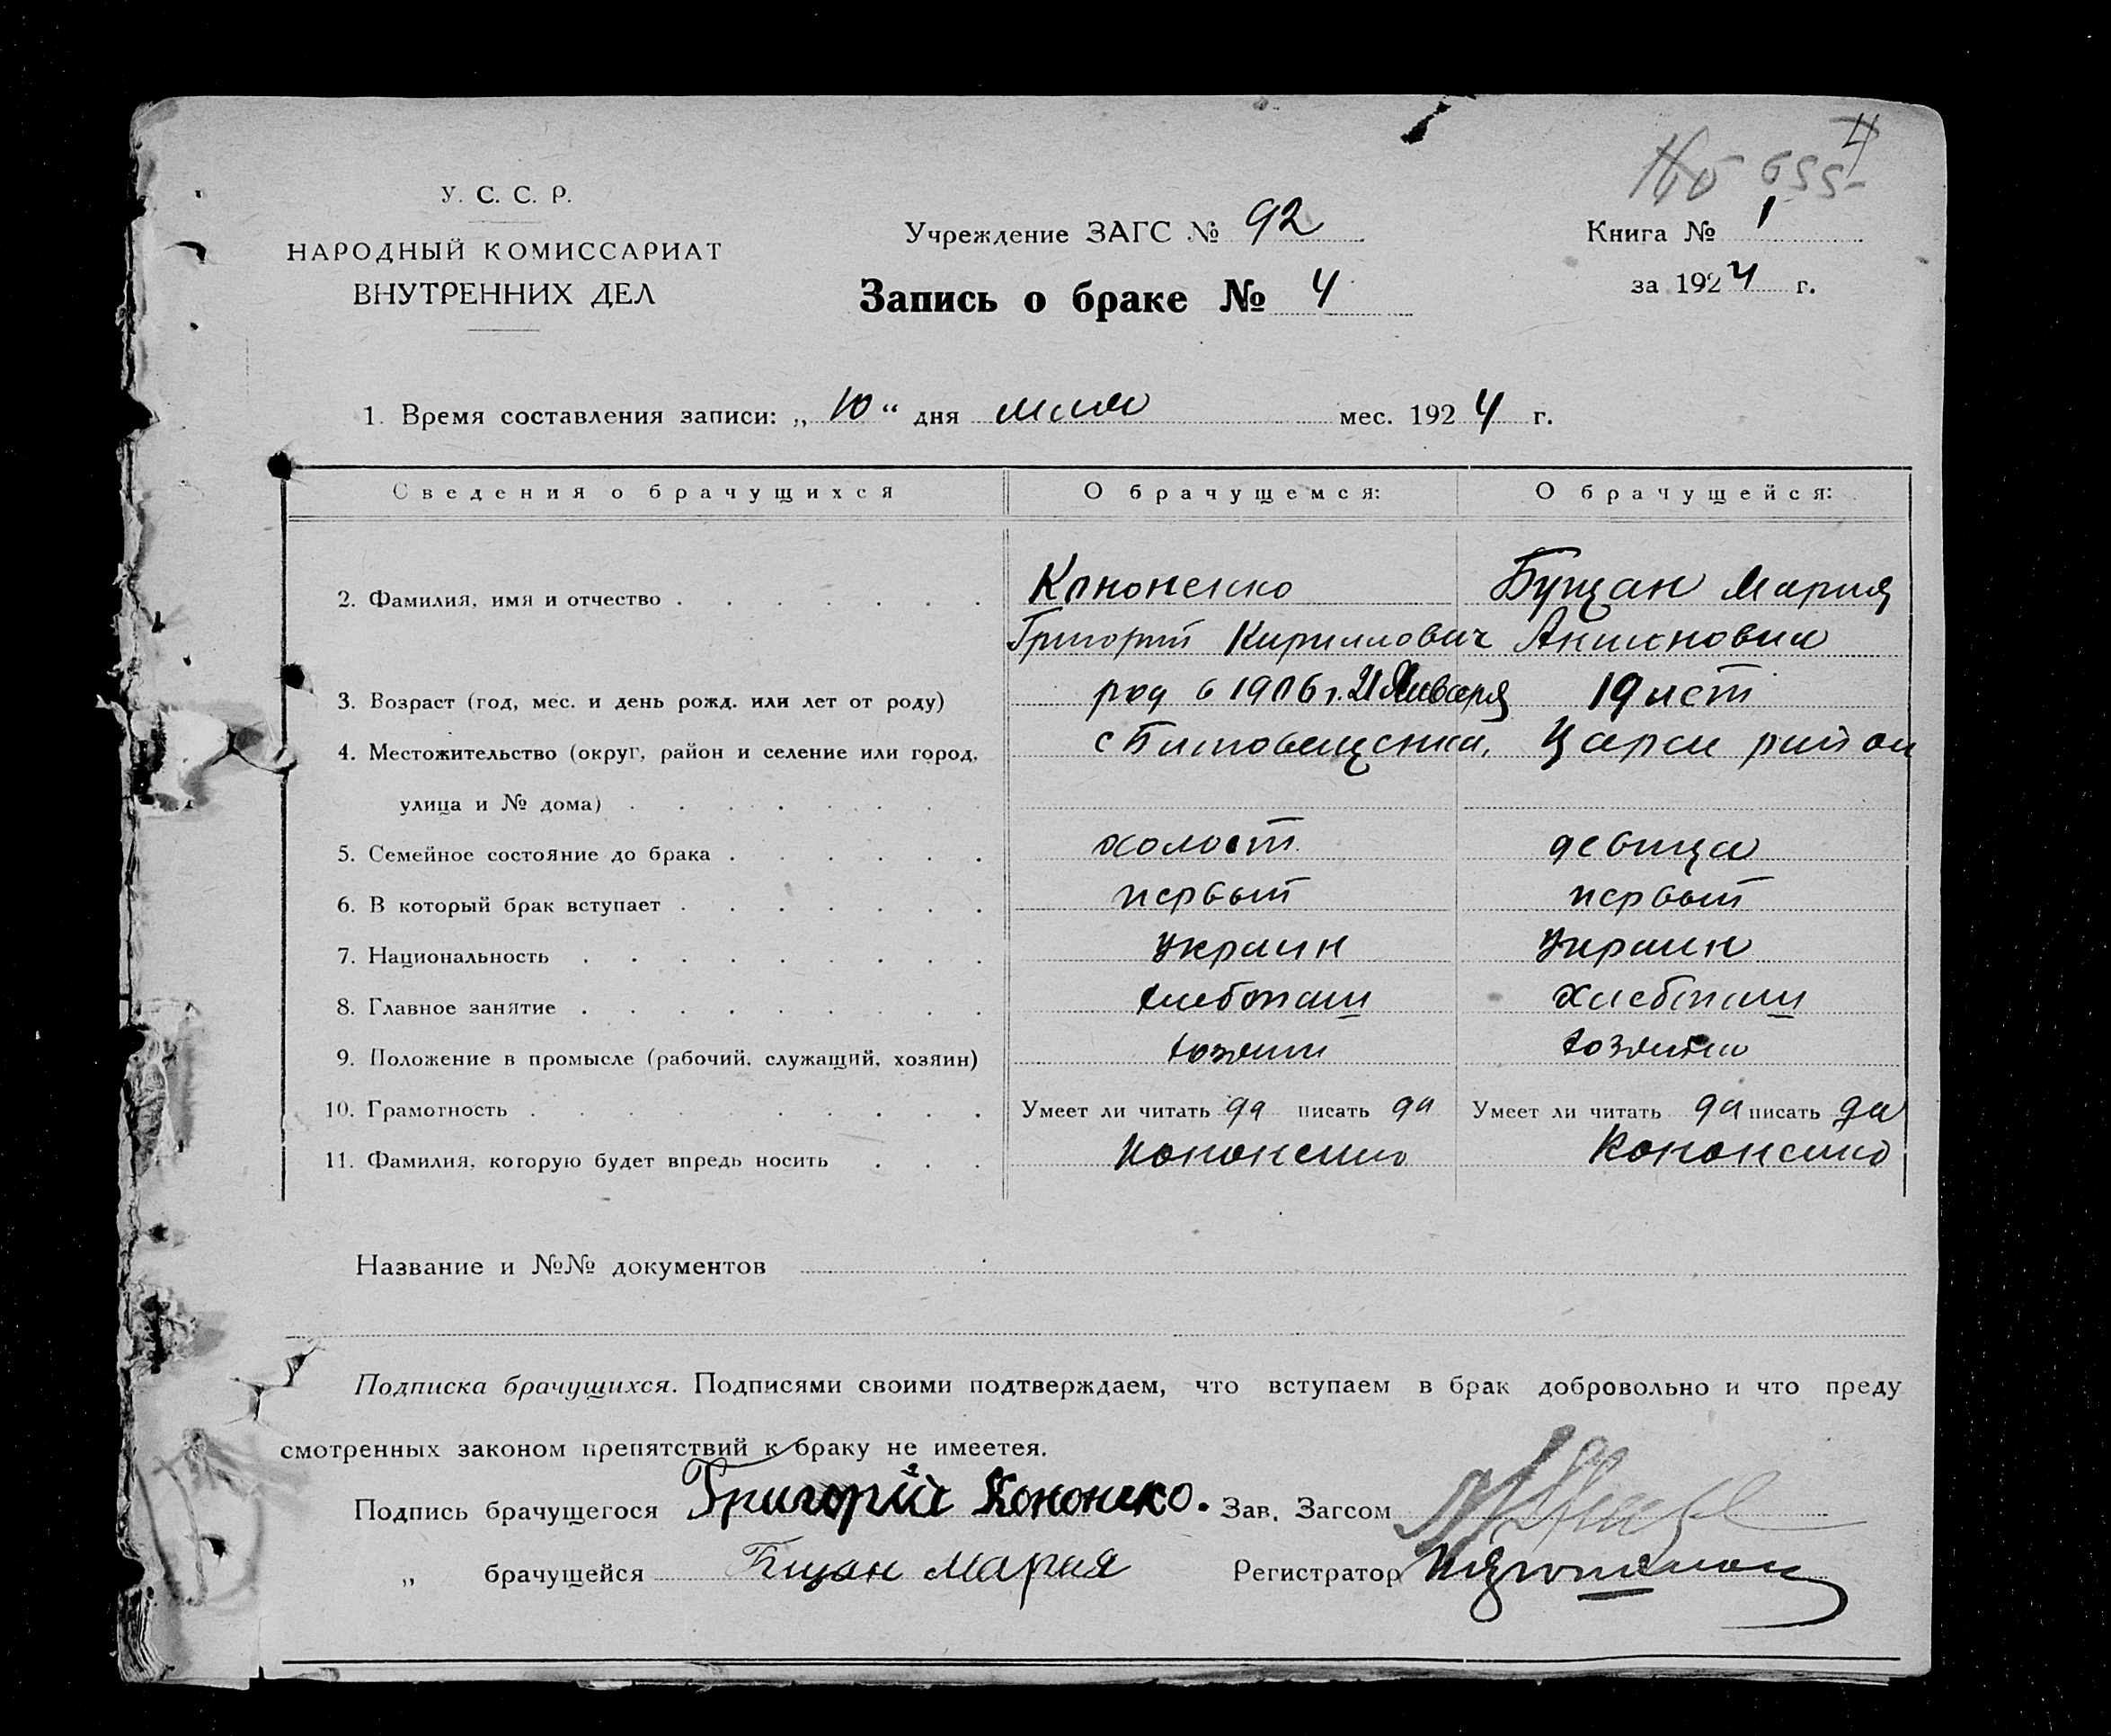 4
655
У. С. С. Р.
НАРОДНЫЙ КОМИССАРИАТ
ВНУТРЕННИХ ДЕЛ
Учреждение ЗАГС № 92
Запись о браке № 4
Книга № 1
за 1924 г.
1. Время составления записи: „ 10 “ дня мая мес. 1924 г.
Сведения о брачущихся О брачущемся: О брачущейся:
2. Фамилия, имя и отчество Кононенко Бущан Мария
Григорий Кириллович
3. Возраст (год, мес. и день рожд. или лет от роду) род в 1906 г. 21 Января 19 лет
4. Местожительство (округ, район и селение или город, с Благовещенка, Царек район
улица и № дома)
5. Семейное состояние до брака холост девица
6. В который брак вступает первый первый
7. Национальность украин украин
8. Главное занятие хлебопаш хлебопаш
9. Положение в промысле (рабочий, служащий, хозяин) хозяин хозяйка
10. Грамотность Умеет ли читать да писать да Умеет ли читать да писать да
11. Фамилия, которую будет впредь носить Кононенко Кононенко
Название и №№ документов
Подписка брачущихся. Подписями своими подтверждаем, что вступаем в брак добровольно и что преду
смотренных законом препятствий к браку не имеетея.
Подпись брачущегося Григорій Кононеко. Зав. Загсом
„ брачущейся Бущан Мария Регистратор